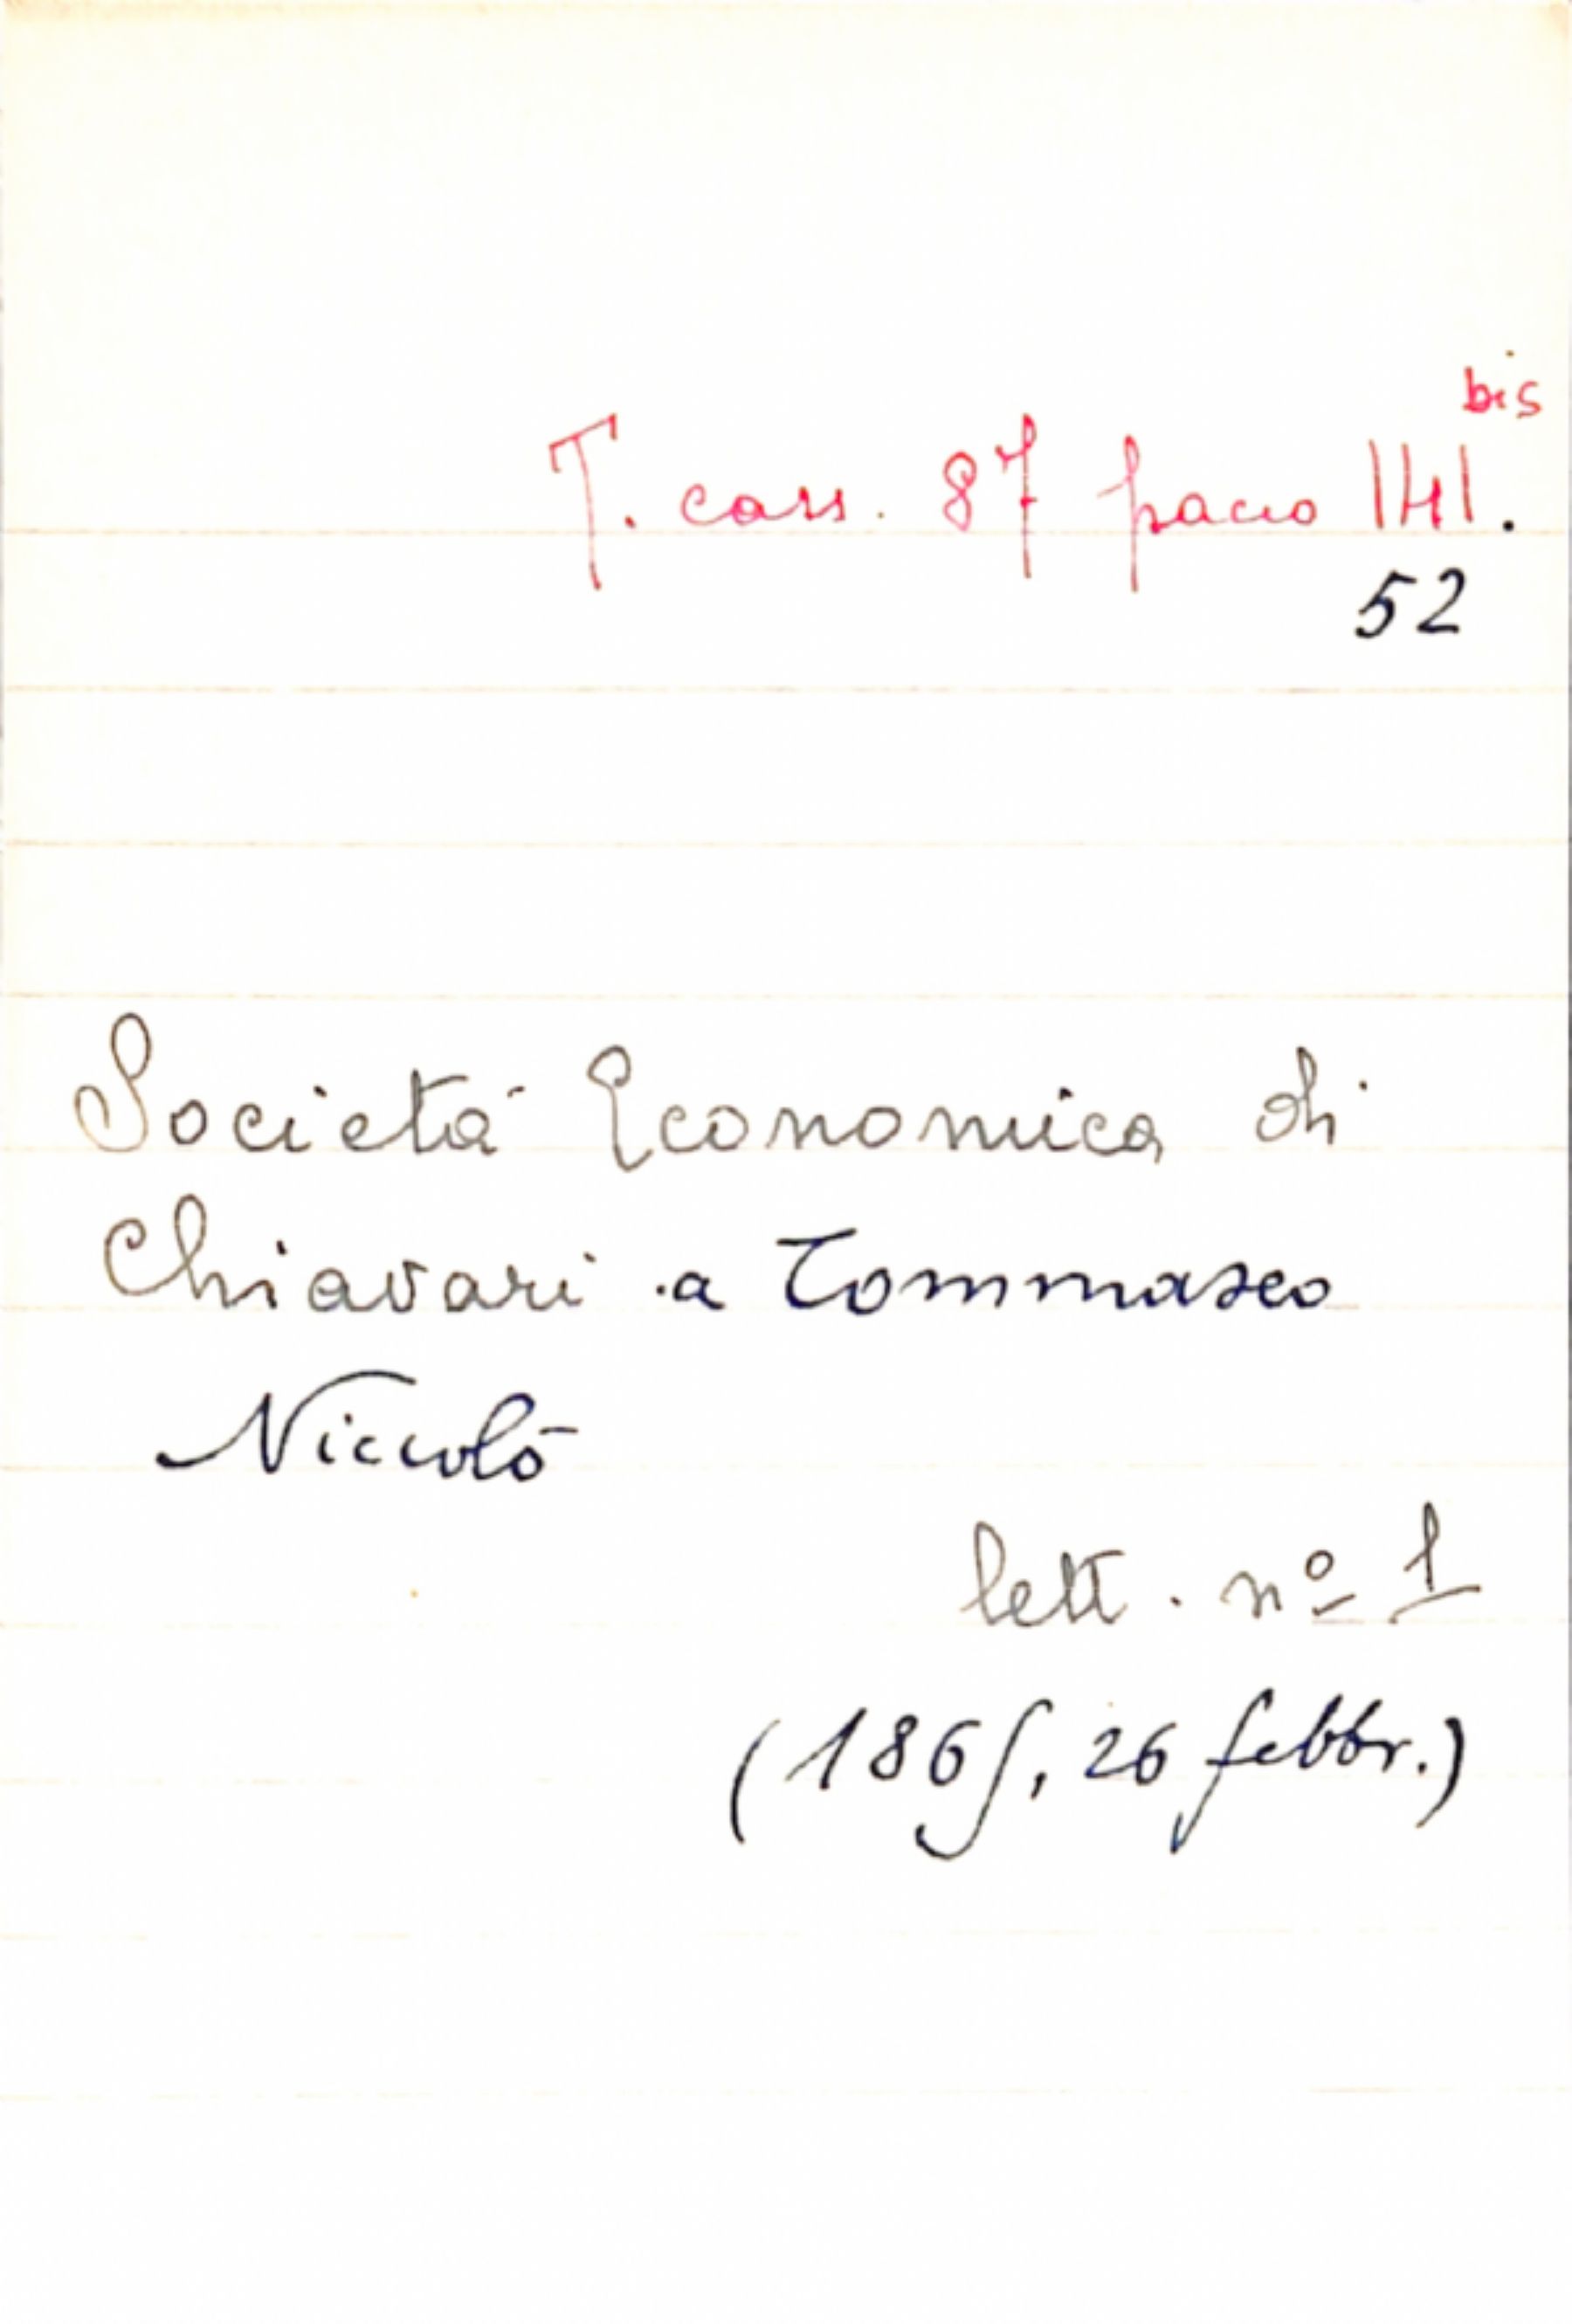 bis
T. cass. 87 pacco 141.
52
Società Economica di
Chiavari a Tommaseo
Niccolò
lett. nº 1
(1865, 26 febbr.)